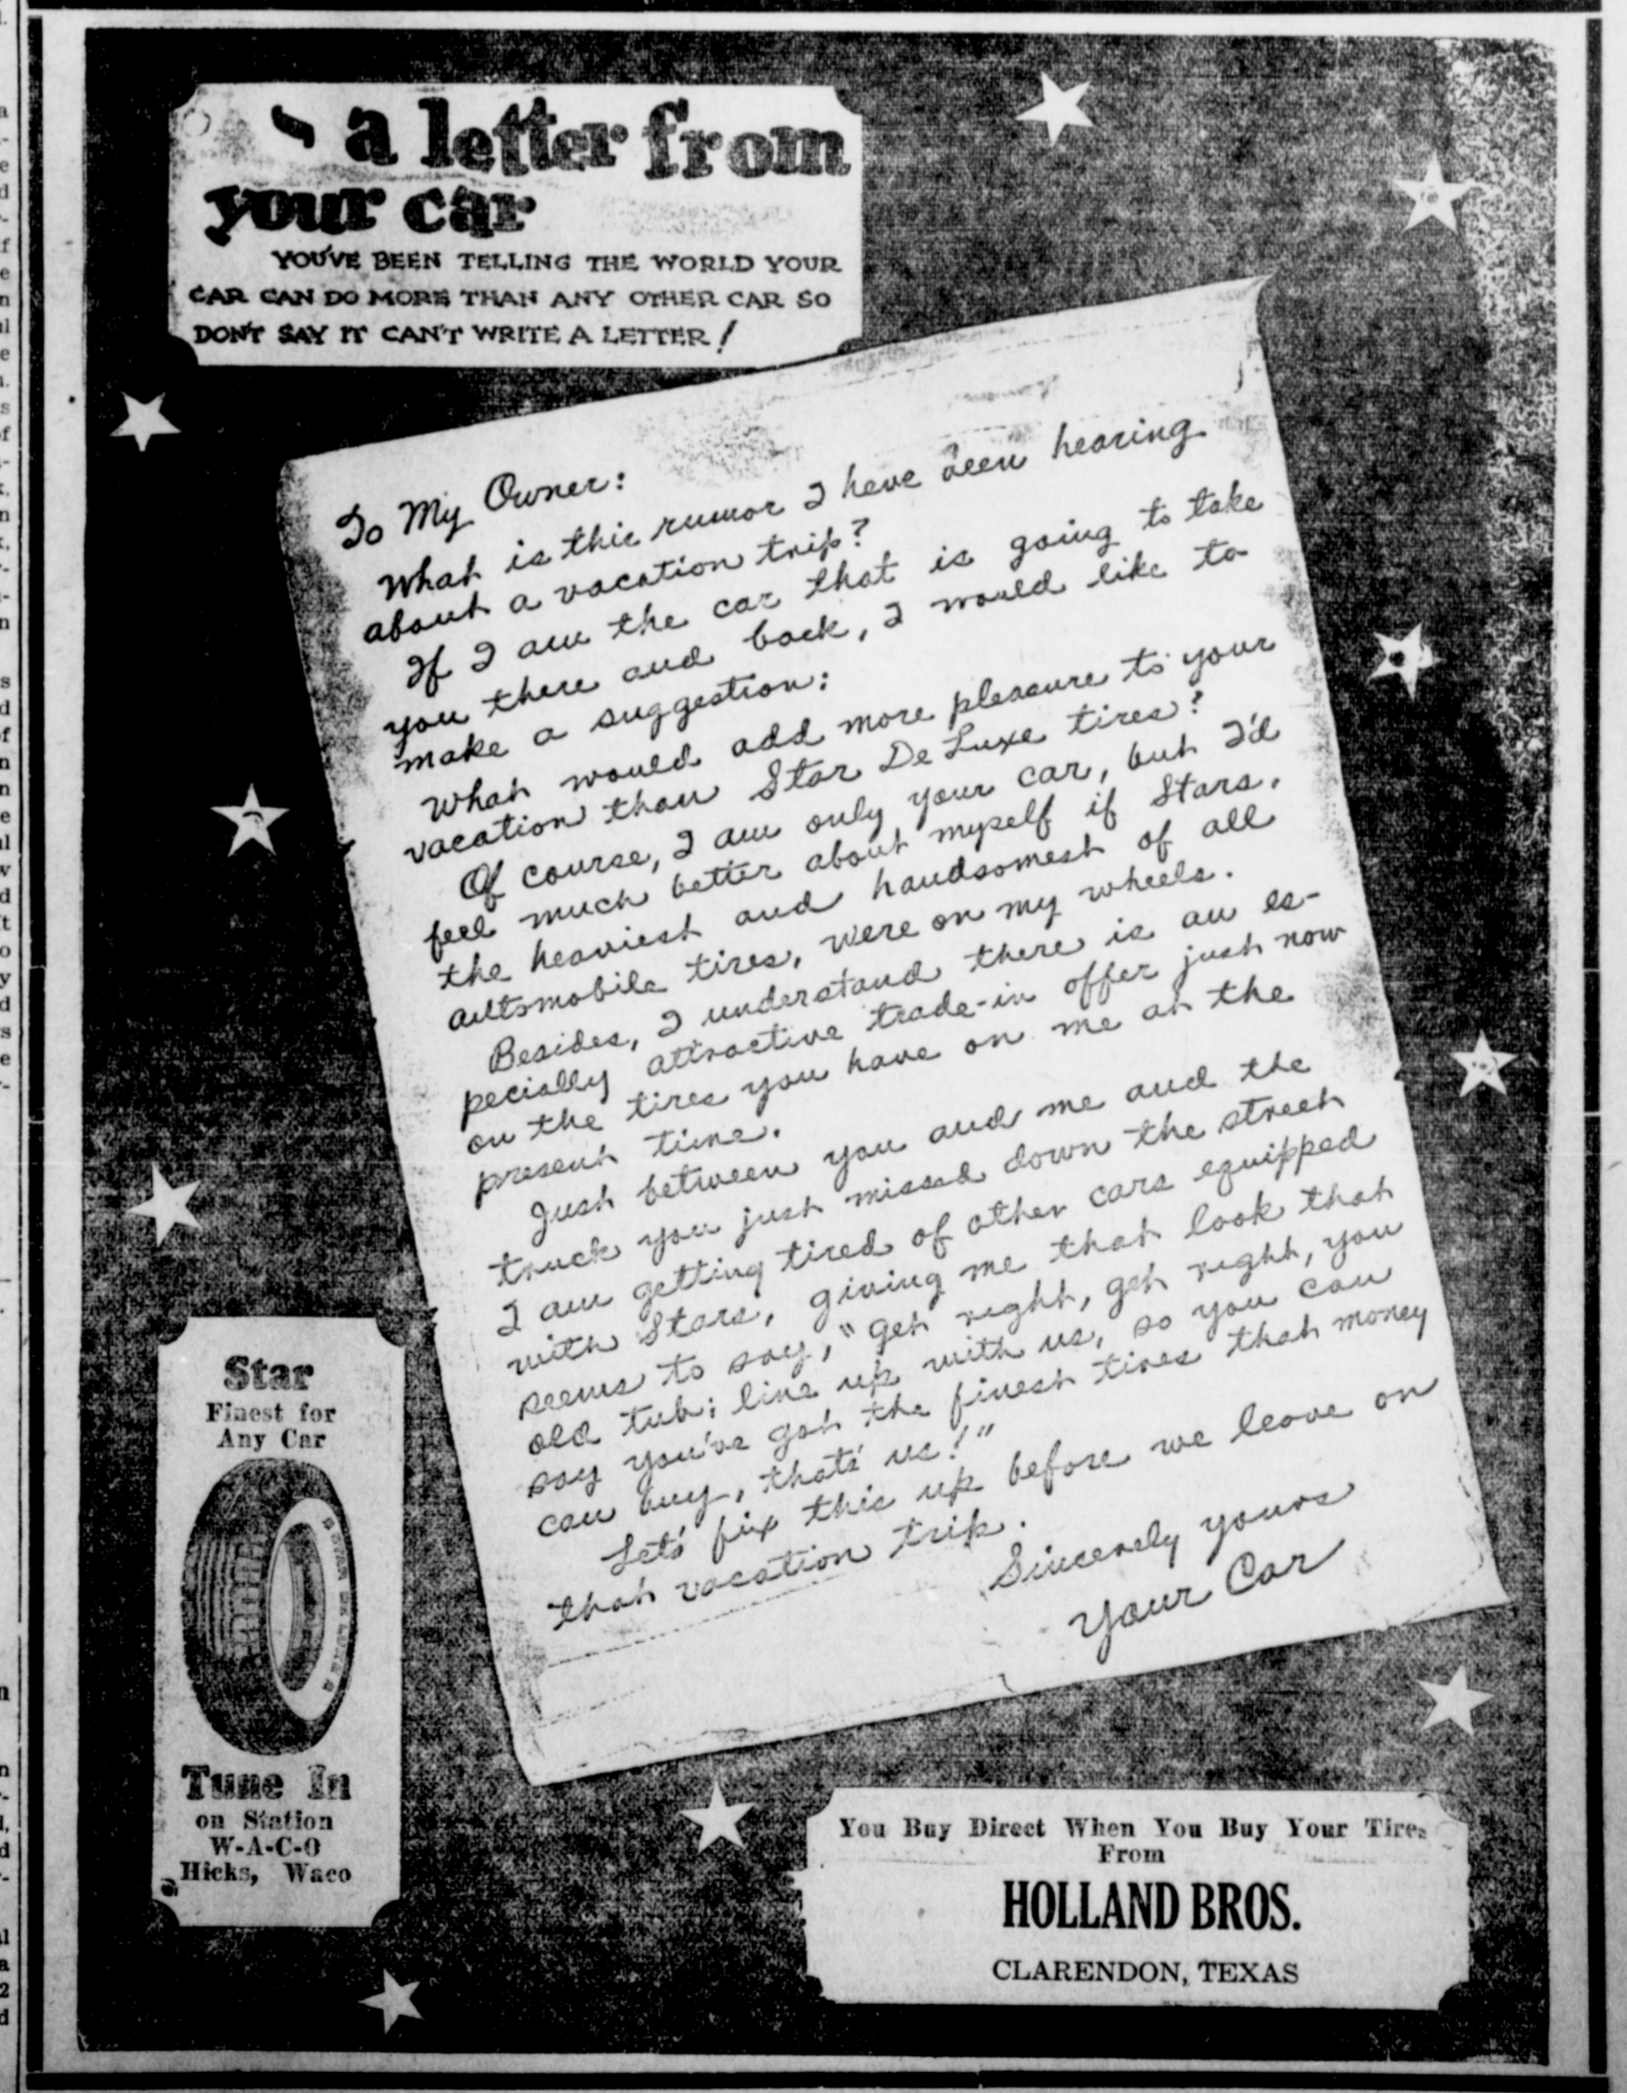 a letter from
your car
YOU'VE BEEN TELLING THE WORLD YOUR
CAR CAN DO MORE THAN ANY OTHER CAR SO
DON'T SAY IT CAN'T WRITE A LETTER!
To My Owner:
What is this rumor I have been hearing
about a vacation trip?
If I am the car that is going to take
you there and back, I would like to
make a suggestion:
What would add more pleasure to your
vacation than Star De Luxe tires?
Of course, I am only your car, but I'd
feel much better about myself if Stars,
the heaviest and handsomest of all
automobile tires, were on my wheels.
Besides, I understand there is an es-
pecially attractive trade-in offer just now
on the tires you have on me at the
present time.
Just between you and me and the
truck you just missed down the street
I am getting tired of other cars equipped
with Stars, giving me that look that
seems to say, "get right, get right, you
old tub; line up with us, so you can
say you've got the finest tires that money
can buy, that's us!"
Let's fix this up before we leave on
that vacation trip.
Sincerely yours
Your Car
Star
Finest for
Any Car
Tune In
on Station
W-A-C-O
Hicks, Waco
You Buy Direct When You Buy Your Tires
From
HOLLAND BROS.
CLARENDON, TEXAS